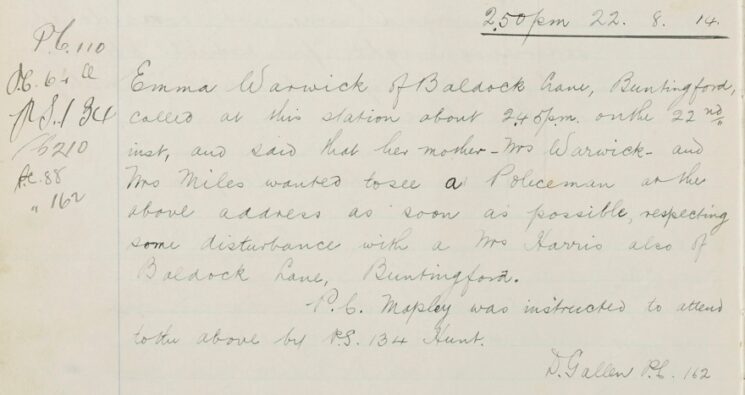 2.50pm 22. 8. 14.
P.C. 110
P.C. 64
P.S. 134
210
P.C. 88
" 162
Emma Warwick of Baldock Lane, Buntingford,
called at this station about 2.45pm. on the 22nd
inst, and said that her mother - Mrs Warwick - and
Mrs Miles wanted to see a Policeman at the
above address as soon as possible, respecting
some disturbance with a Mrs Harris also of
Baldock Lane, Buntingford.
P.C. Mapley was instructed to attend
to the above by P.S. 134 Hunt.
D. Gallen P.C. 162